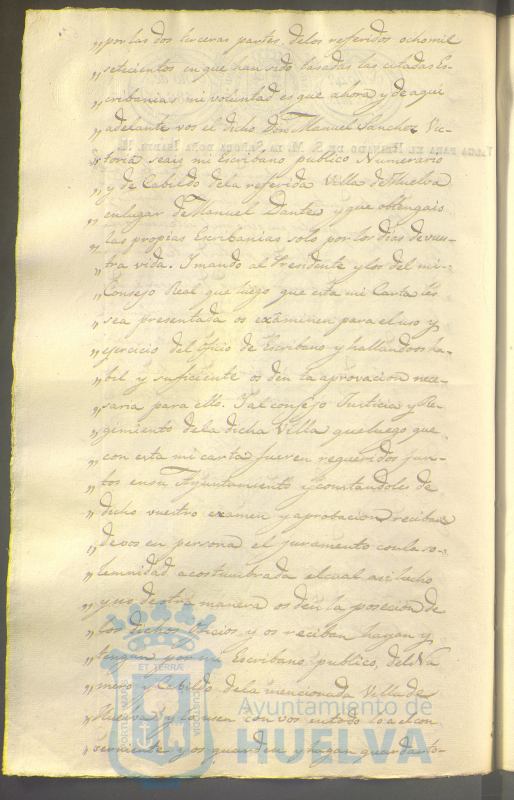 „ por las dos terceras partes, delos referidos ochomil
„ setecientos en que han sido tasadas las citadas Es-
„ cribanias mi voluntad es que ahora y de aqui
„ adelante vos el dicho Don Manuel Sanchez Vic-
„ toria seais mi Escribano publico Numerario
„ y de Cabildo dela referida Villa de Huelva
„ en lugar de Manuel Dantes y que obtengais
„ las propias Escribanias solo por los dias de vues-
„ tra vida. Y mando al Presidente y los del mi-
„ Consejo Real que luego que esta mi Carta les
„ sea presentada os exâminen para el uso y
„ ejercicio del oficio de Escribano y hallandoos ha-
„ bil y suficiente os den la aprovacion nece-
„ saria para ello. Y al consejo Justicia y Re-
„ gimiento dela dicha Villa que luego que
„ con esta mi carta fueren requeridos jun-
„ tos en su Ayuntamiento y constandoles de
„ dicho vuestro exâmen y aprobacion reciban
„ de vos en persona el juramento con la so-
„ lemnidad acostumbrada el cual asi hecho
„ y no de otra manera os den la posecion de
„ los dichos oficios y os reciban hayan y
„ tengan por mi Escribano publico, del Nu
„ mero y Cabildo dela mencionada Villa de
„ Huelva y lo usen con vos en todo lo a el con
„ serniente y os guarden y hagan guardar to-
VALGA PARA EL REINADO DE S. M. LA SEÑORA DOÑA ISABEL II.
ET TERRÆ
Ayuntamiento de
HUELVA